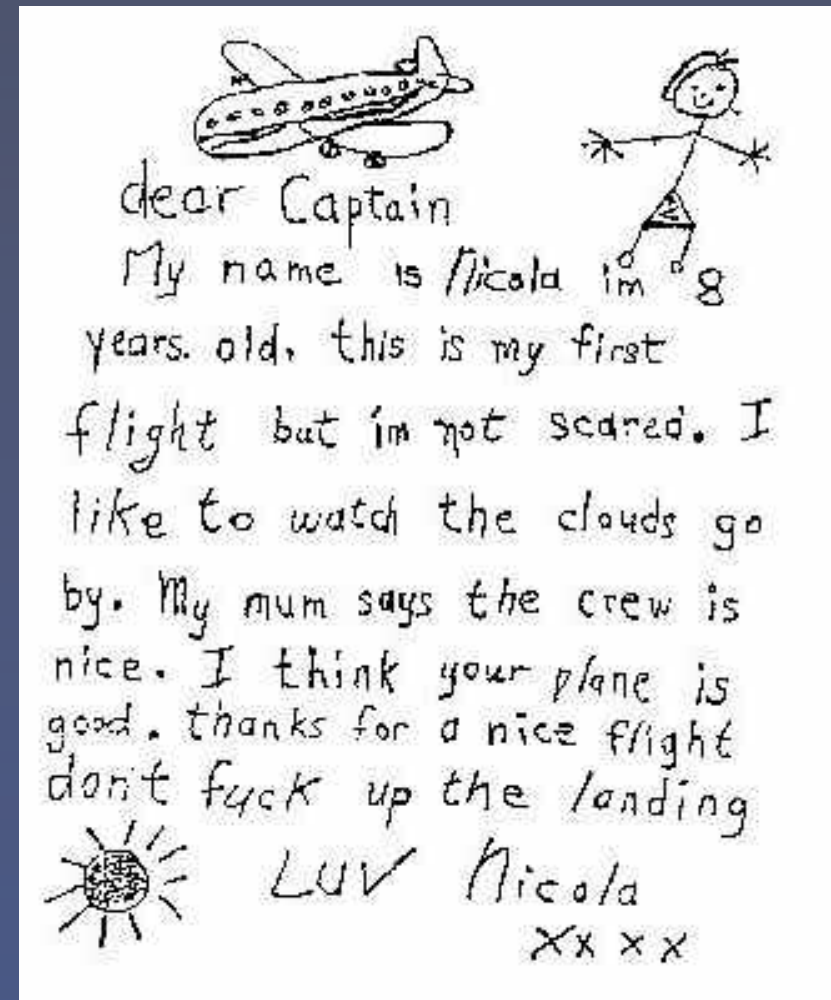 dear Captain
My name is Nicola im 8
years. old. this is my first
flight but im not scared. I
like to watch the clouds go
by. My mum says the crew is
nice. I think your plane is
good. thanks for a nice flight
don't fuck up the landing
LUV Nicola
xx x x